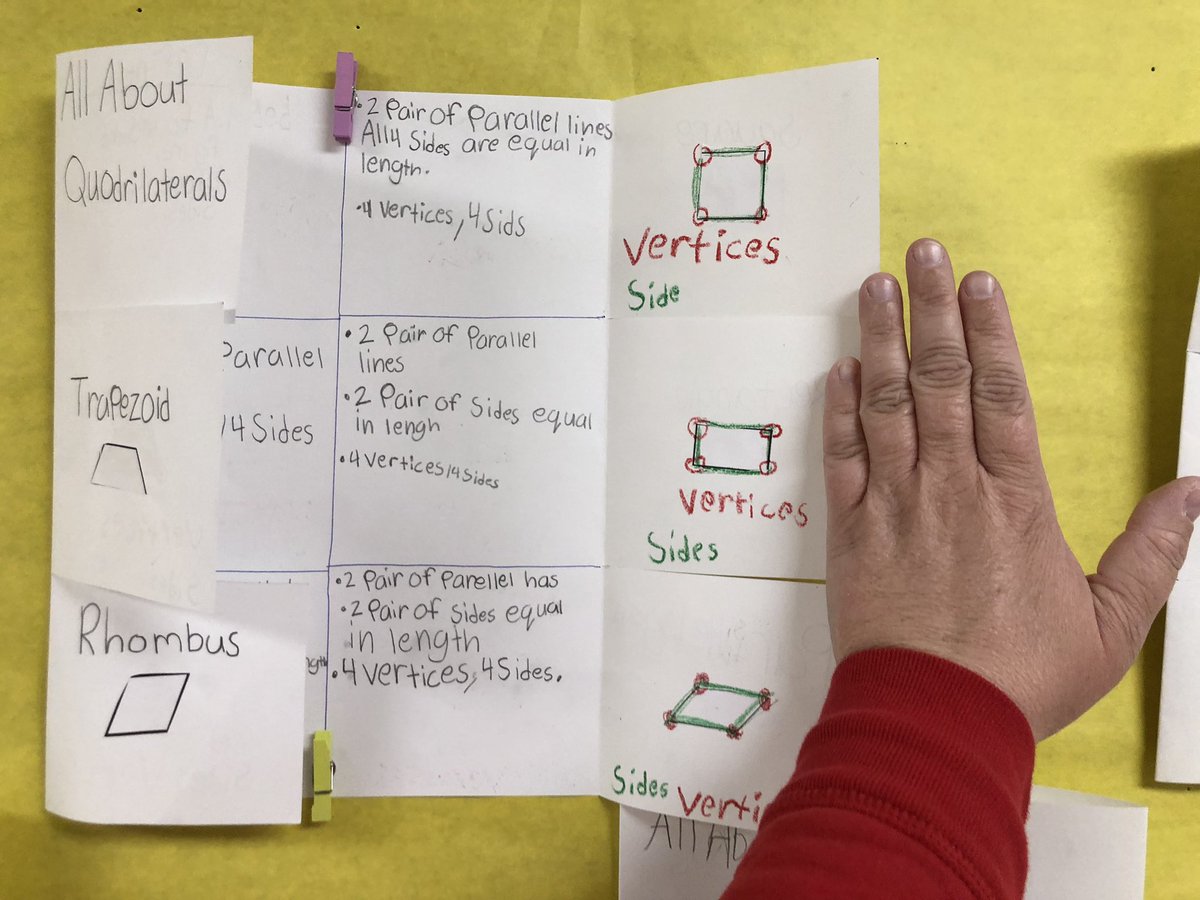 All About
Quadrilaterals
Trapezoid
Rhombus
Parallel
4 Sides
• 2 Pair of Parallel lines
All 4 Sides are equal in
length.
• 4 Vertices, 4 Sids
• 2 Pair of Parallel
lines
• 2 Pair of Sides equal
in lengh
• 4 Vertices/4 Sides
• 2 Pair of Parellel has
• 2 Pair of Sides equal
in length
• 4 Vertices, 4 Sides.
Vertices
Side
Vertices
Sides
Sides Verti
All Ab